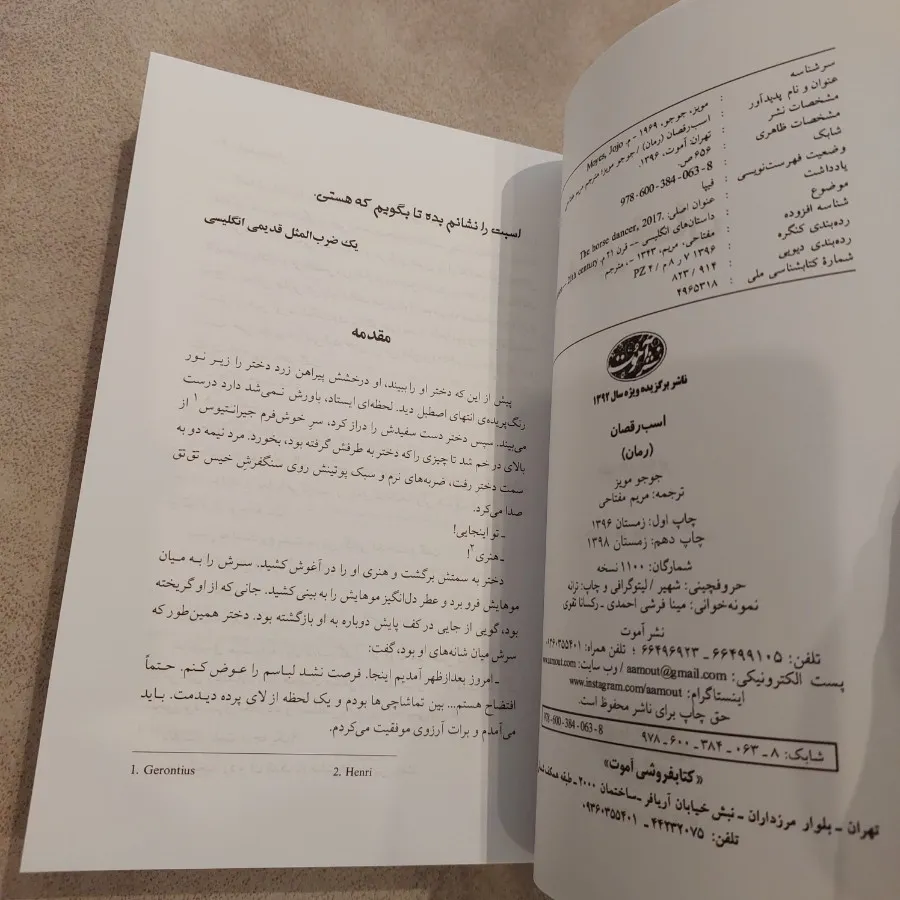 سرشناسه : مویز، جوجو، ۱۹۶۹ - م. Moyes, Jojo
عنوان و نام پدیدآور : اسب رقصان (رمان) / جوجو مویز؛ مترجم مریم
مشخصات نشر : تهران: آموت، ۱۳۹۶.
مشخصات ظاهری : ۶۵۶ ص.
شابک : 978-600-384-063-8
وضعیت فهرست‌نویسی : فیپا
یادداشت : عنوان اصلی: The horse dancer, 2017.
موضوع : داستان‌های انگلیسی -- قرن ۲۱ م. century
شناسه افزوده : مفتاحی، مریم، ۱۳۴۳ - ، مترجم
رده‌بندی کنگره : ۱۳۹۶ ۷ ر ۸ م / PZ ۴
رده‌بندی دیویی : ۸۲۳ / ۹۱۴
شمارهٔ کتابشناسی ملی : ۴۹۶۵۳۱۸
نشر آموت
ناشر برگزیده ویژه سال ۱۳۹۲
اسب رقصان
(رمان)
جوجو مویز
ترجمه: مریم مفتاحی
چاپ اول: زمستان ۱۳۹۶
چاپ دهم: زمستان ۱۳۹۸
شمارگان: ۱۱۰۰ نسخه
حروفچینی: شهیر / لیتوگرافی و چاپ: ترانه
نمونه‌خوانی: مینا فرشی احمدی - رکسانا تقوی
نشر آموت
تلفن: ۶۶۴۹۹۱۰۵ ـ ۶۶۴۹۶۹۲۳ ؛ تلفن همراه: ۰۹۳۶۰۳۵۵۴۰۱
پست الکترونیکی: aamout@gmail.com / وب سایت: www.aamout.com
اینستاگرام: www.instagram.com/aamout
حق چاپ برای ناشر محفوظ است.
شابک: ۸ ـ ۰۶۳ ـ ۳۸۴ ـ ۶۰۰ ـ ۹۷۸ 978-600-384-063-8
«کتابفروشی آموت»
تهران ـ بلوار مرزداران ـ نبش خیابان آریافر ـ ساختمان ۲۰۰۰ ـ طبقه همکف
تلفن: ۴۴۲۳۲۰۷۵ ـ ۰۹۳۶۰۳۵۵۴۰۱
اسبت را نشانم بده تا بگویم که هستی.
یک ضرب‌المثل قدیمی انگلیسی
مقدمه
پیش از این که دختر او را ببیند، او درخشش پیراهن زرد دختر را زیر نور
رنگ‌پریده‌ی انتهای اصطبل دید. لحظه‌ای ایستاد، باورش نمی‌شد دارد درست
می‌بیند. سپس دختر دست سفیدش را دراز کرد، سر خوش‌فرم جیرانتیوس۱ از
بالای در خم شد تا چیزی را که دختر به طرفش گرفته بود، بخورد. مرد نیمه دو به
سمت دختر رفت، ضربه‌های نرم و سبک پوتینش روی سنگفرش خیس تق‌تق
صدا می‌کرد.
ـ تو اینجایی!
ـ هنری۲!
دختر به سمتش برگشت و هنری او را در آغوش کشید. سرش را به میان
موهایش فرو برد و عطر دل‌انگیز موهایش را به بینی کشید. جانی که از او گریخته
بود، گویی از جایی در کف پایش دوباره به او بازگشته بود. دختر همین‌طور که
سرش میان شانه‌های او بود، گفت:
ـ امروز بعدازظهر آمدیم اینجا. فرصت نشد لباسم را عوض کنم. حتماً
افتضاح هستم... بین تماشاچی‌ها بودم و یک لحظه از لای پرده دیدمت. باید
می‌آمدم و برات آرزوی موفقیت می‌کردم.
1. Gerontius 2. Henri